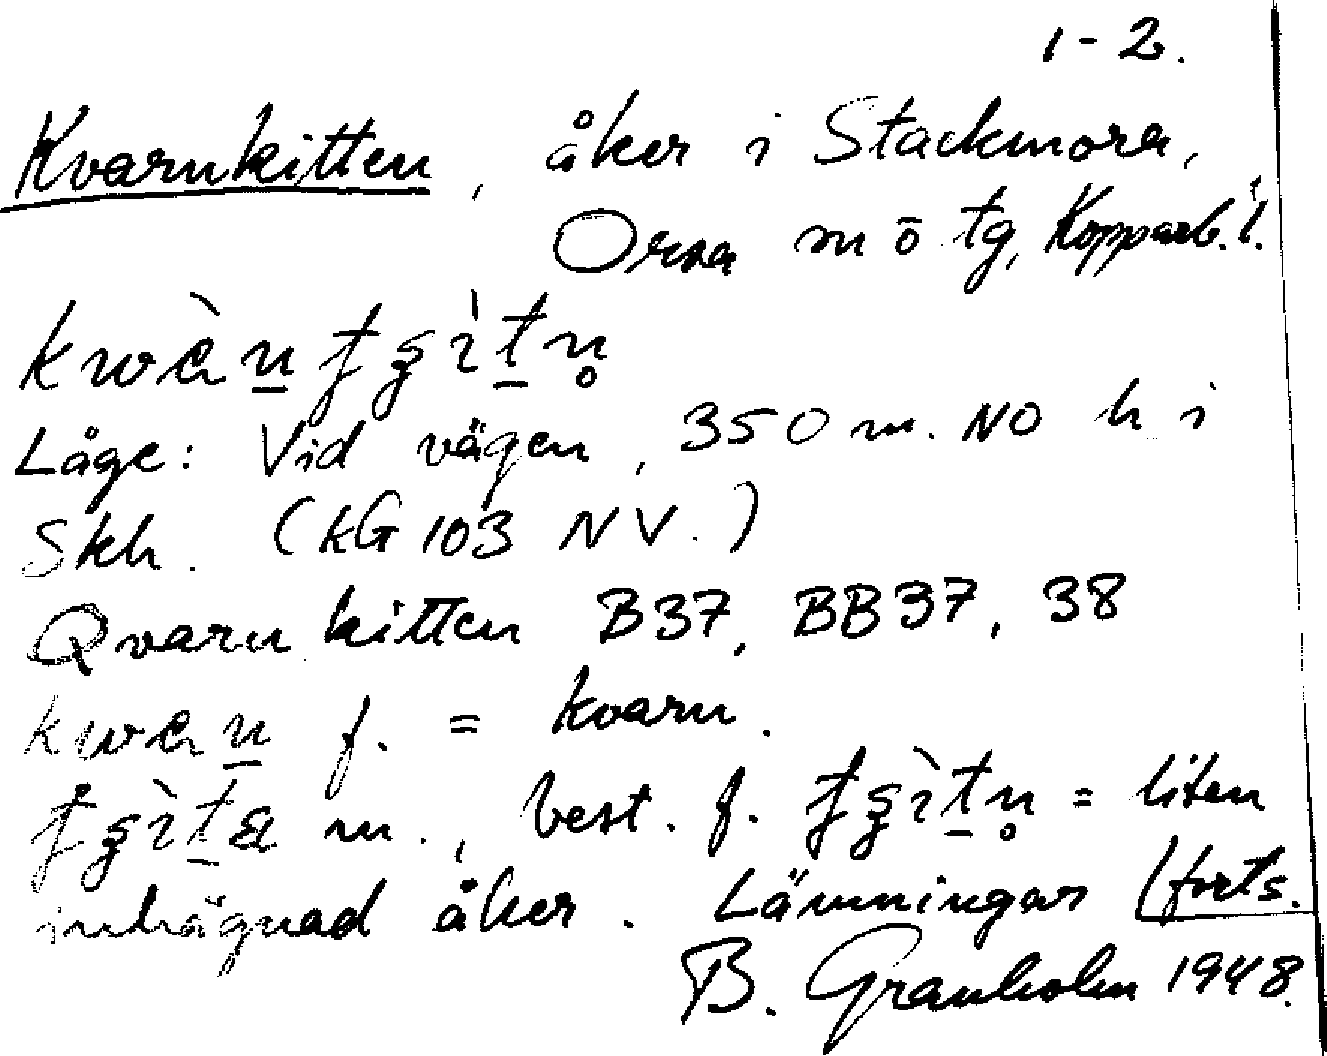 1-2.
Kvarnkitten, åker i Stackmora,
Orsa m ö tg, Kopparb. l.
Läge: Vid vägen, 350 m. NO h i
Skh. (kG 103 NV.)
Qvarnkitten B37, BB37, 38
f. = kvarn.
m., best. f. = liten
inhägnad åker. Lämningar (forts.
B. Granholm 1948.